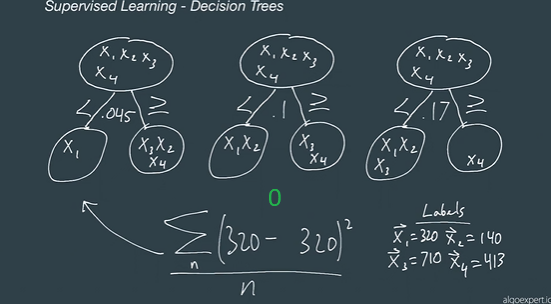 Supervised Learning - Decision Trees
X₁ X₂ X₃
X₄
X₁ X₂ X₃
X₄
X₁ X₂ X₃
X₄
< .045 ≥
< .1 ≥
< .17 ≥
X₁
X₃ X₂
X₄
X₁ X₂
X₃
X₄
X₁ X₂
X₃
X₄
0
∑ (320 - 320)²
n
n
Labels
X⃗₁=320 X⃗₂=140
X⃗₃=710 X⃗₄=413
algoexpert.io